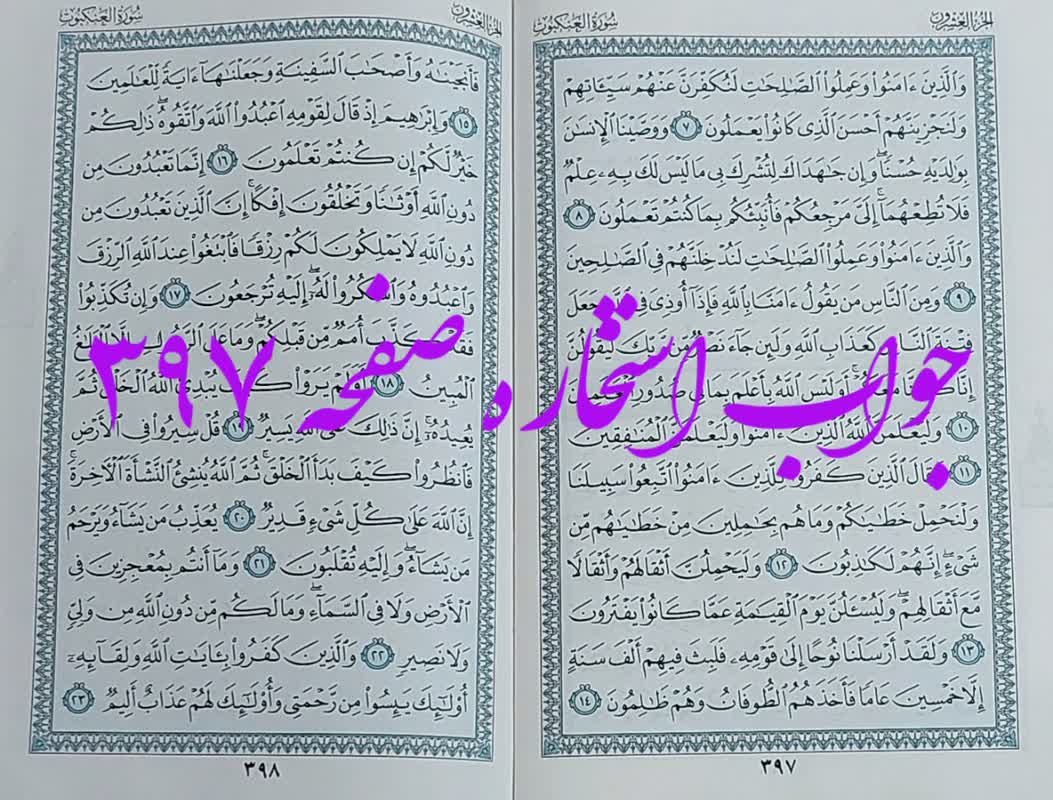 الجزء العشرون
سورة العنكبوت
وَالَّذِينَ ءَامَنُوا۟ وَعَمِلُوا۟ الصَّٰلِحَٰتِ لَنُكَفِّرَنَّ عَنْهُمْ سَيِّـَٔاتِهِمْ
وَلَنَجْزِيَنَّهُمْ أَحْسَنَ الَّذِى كَانُوا۟ يَعْمَلُونَ ٧ وَوَصَّيْنَا الْإِنسَٰنَ
بِوَٰلِدَيْهِ حُسْنًا وَإِن جَٰهَدَاكَ لِتُشْرِكَ بِى مَا لَيْسَ لَكَ بِهِۦ عِلْمٌ
فَلَا تُطِعْهُمَآ إِلَىَّ مَرْجِعُكُمْ فَأُنَبِّئُكُم بِمَا كُنتُمْ تَعْمَلُونَ ٨
وَالَّذِينَ ءَامَنُوا۟ وَعَمِلُوا۟ الصَّٰلِحَٰتِ لَنُدْخِلَنَّهُمْ فِى الصَّٰلِحِينَ
٩ وَمِنَ النَّاسِ مَن يَقُولُ ءَامَنَّا بِاللَّهِ فَإِذَآ أُوذِىَ فِى اللَّهِ جَعَلَ
فِتْنَةَ النَّاسِ كَعَذَابِ اللَّهِ وَلَئِن جَآءَ نَصْرٌ مِّن رَّبِّكَ لَيَقُولُنَّ
إِنَّا كُنَّا مَعَكُمْ أَوَلَيْسَ اللَّهُ بِأَعْلَمَ بِمَا فِى صُدُورِ الْعَٰلَمِينَ
١٠ وَلَيَعْلَمَنَّ اللَّهُ الَّذِينَ ءَامَنُوا۟ وَلَيَعْلَمَنَّ الْمُنَٰفِقِينَ
١١ وَقَالَ الَّذِينَ كَفَرُوا۟ لِلَّذِينَ ءَامَنُوا۟ اتَّبِعُوا۟ سَبِيلَنَا
وَلْنَحْمِلْ خَطَٰيَٰكُمْ وَمَا هُم بِحَٰمِلِينَ مِنْ خَطَٰيَٰهُم مِّن
شَىْءٍ إِنَّهُمْ لَكَٰذِبُونَ ١٢ وَلَيَحْمِلُنَّ أَثْقَالَهُمْ وَأَثْقَالًا
مَّعَ أَثْقَالِهِمْ وَلَيُسْـَٔلُنَّ يَوْمَ الْقِيَٰمَةِ عَمَّا كَانُوا۟ يَفْتَرُونَ
١٣ وَلَقَدْ أَرْسَلْنَا نُوحًا إِلَىٰ قَوْمِهِۦ فَلَبِثَ فِيهِمْ أَلْفَ سَنَةٍ
إِلَّا خَمْسِينَ عَامًا فَأَخَذَهُمُ الطُّوفَانُ وَهُمْ ظَٰلِمُونَ ١٤
٣٩٧
الجزء العشرون
سورة العنكبوت
فَأَنجَيْنَٰهُ وَأَصْحَٰبَ السَّفِينَةِ وَجَعَلْنَٰهَآ ءَايَةً لِّلْعَٰلَمِينَ
١٥ وَإِبْرَٰهِيمَ إِذْ قَالَ لِقَوْمِهِ اعْبُدُوا۟ اللَّهَ وَاتَّقُوهُ ذَٰلِكُمْ
خَيْرٌ لَّكُمْ إِن كُنتُمْ تَعْلَمُونَ ١٦ إِنَّمَا تَعْبُدُونَ مِن
دُونِ اللَّهِ أَوْثَٰنًا وَتَخْلُقُونَ إِفْكًا إِنَّ الَّذِينَ تَعْبُدُونَ مِن
دُونِ اللَّهِ لَا يَمْلِكُونَ لَكُمْ رِزْقًا فَابْتَغُوا۟ عِندَ اللَّهِ الرِّزْقَ
وَاعْبُدُوهُ وَاشْكُرُوا۟ لَهُۥٓ إِلَيْهِ تُرْجَعُونَ ١٧ وَإِن تُكَذِّبُوا۟
فَقَدْ كَذَّبَ أُمَمٌ مِّن قَبْلِكُمْ وَمَا عَلَى الرَّسُولِ إِلَّا الْبَلَٰغُ
الْمُبِينُ ١٨ أَوَلَمْ يَرَوْا۟ كَيْفَ يُبْدِئُ اللَّهُ الْخَلْقَ ثُمَّ
يُعِيدُهُۥٓ إِنَّ ذَٰلِكَ عَلَى اللَّهِ يَسِيرٌ ١٩ قُلْ سِيرُوا۟ فِى الْأَرْضِ
فَانظُرُوا۟ كَيْفَ بَدَأَ الْخَلْقَ ثُمَّ اللَّهُ يُنشِئُ النَّشْأَةَ الْءَاخِرَةَ
إِنَّ اللَّهَ عَلَىٰ كُلِّ شَىْءٍ قَدِيرٌ ٢٠ يُعَذِّبُ مَن يَشَآءُ وَيَرْحَمُ
مَن يَشَآءُ وَإِلَيْهِ تُقْلَبُونَ ٢١ وَمَآ أَنتُم بِمُعْجِزِينَ فِى
الْأَرْضِ وَلَا فِى السَّمَآءِ وَمَا لَكُم مِّن دُونِ اللَّهِ مِن وَلِىٍّ
وَلَا نَصِيرٍ ٢٢ وَالَّذِينَ كَفَرُوا۟ بِـَٔايَٰتِ اللَّهِ وَلِقَآئِهِۦٓ
أُو۟لَٰٓئِكَ يَئِسُوا۟ مِن رَّحْمَتِى وَأُو۟لَٰٓئِكَ لَهُمْ عَذَابٌ أَلِيمٌ ٢٣
٣٩٨
جواب استخاره صفحه ۳۹۷